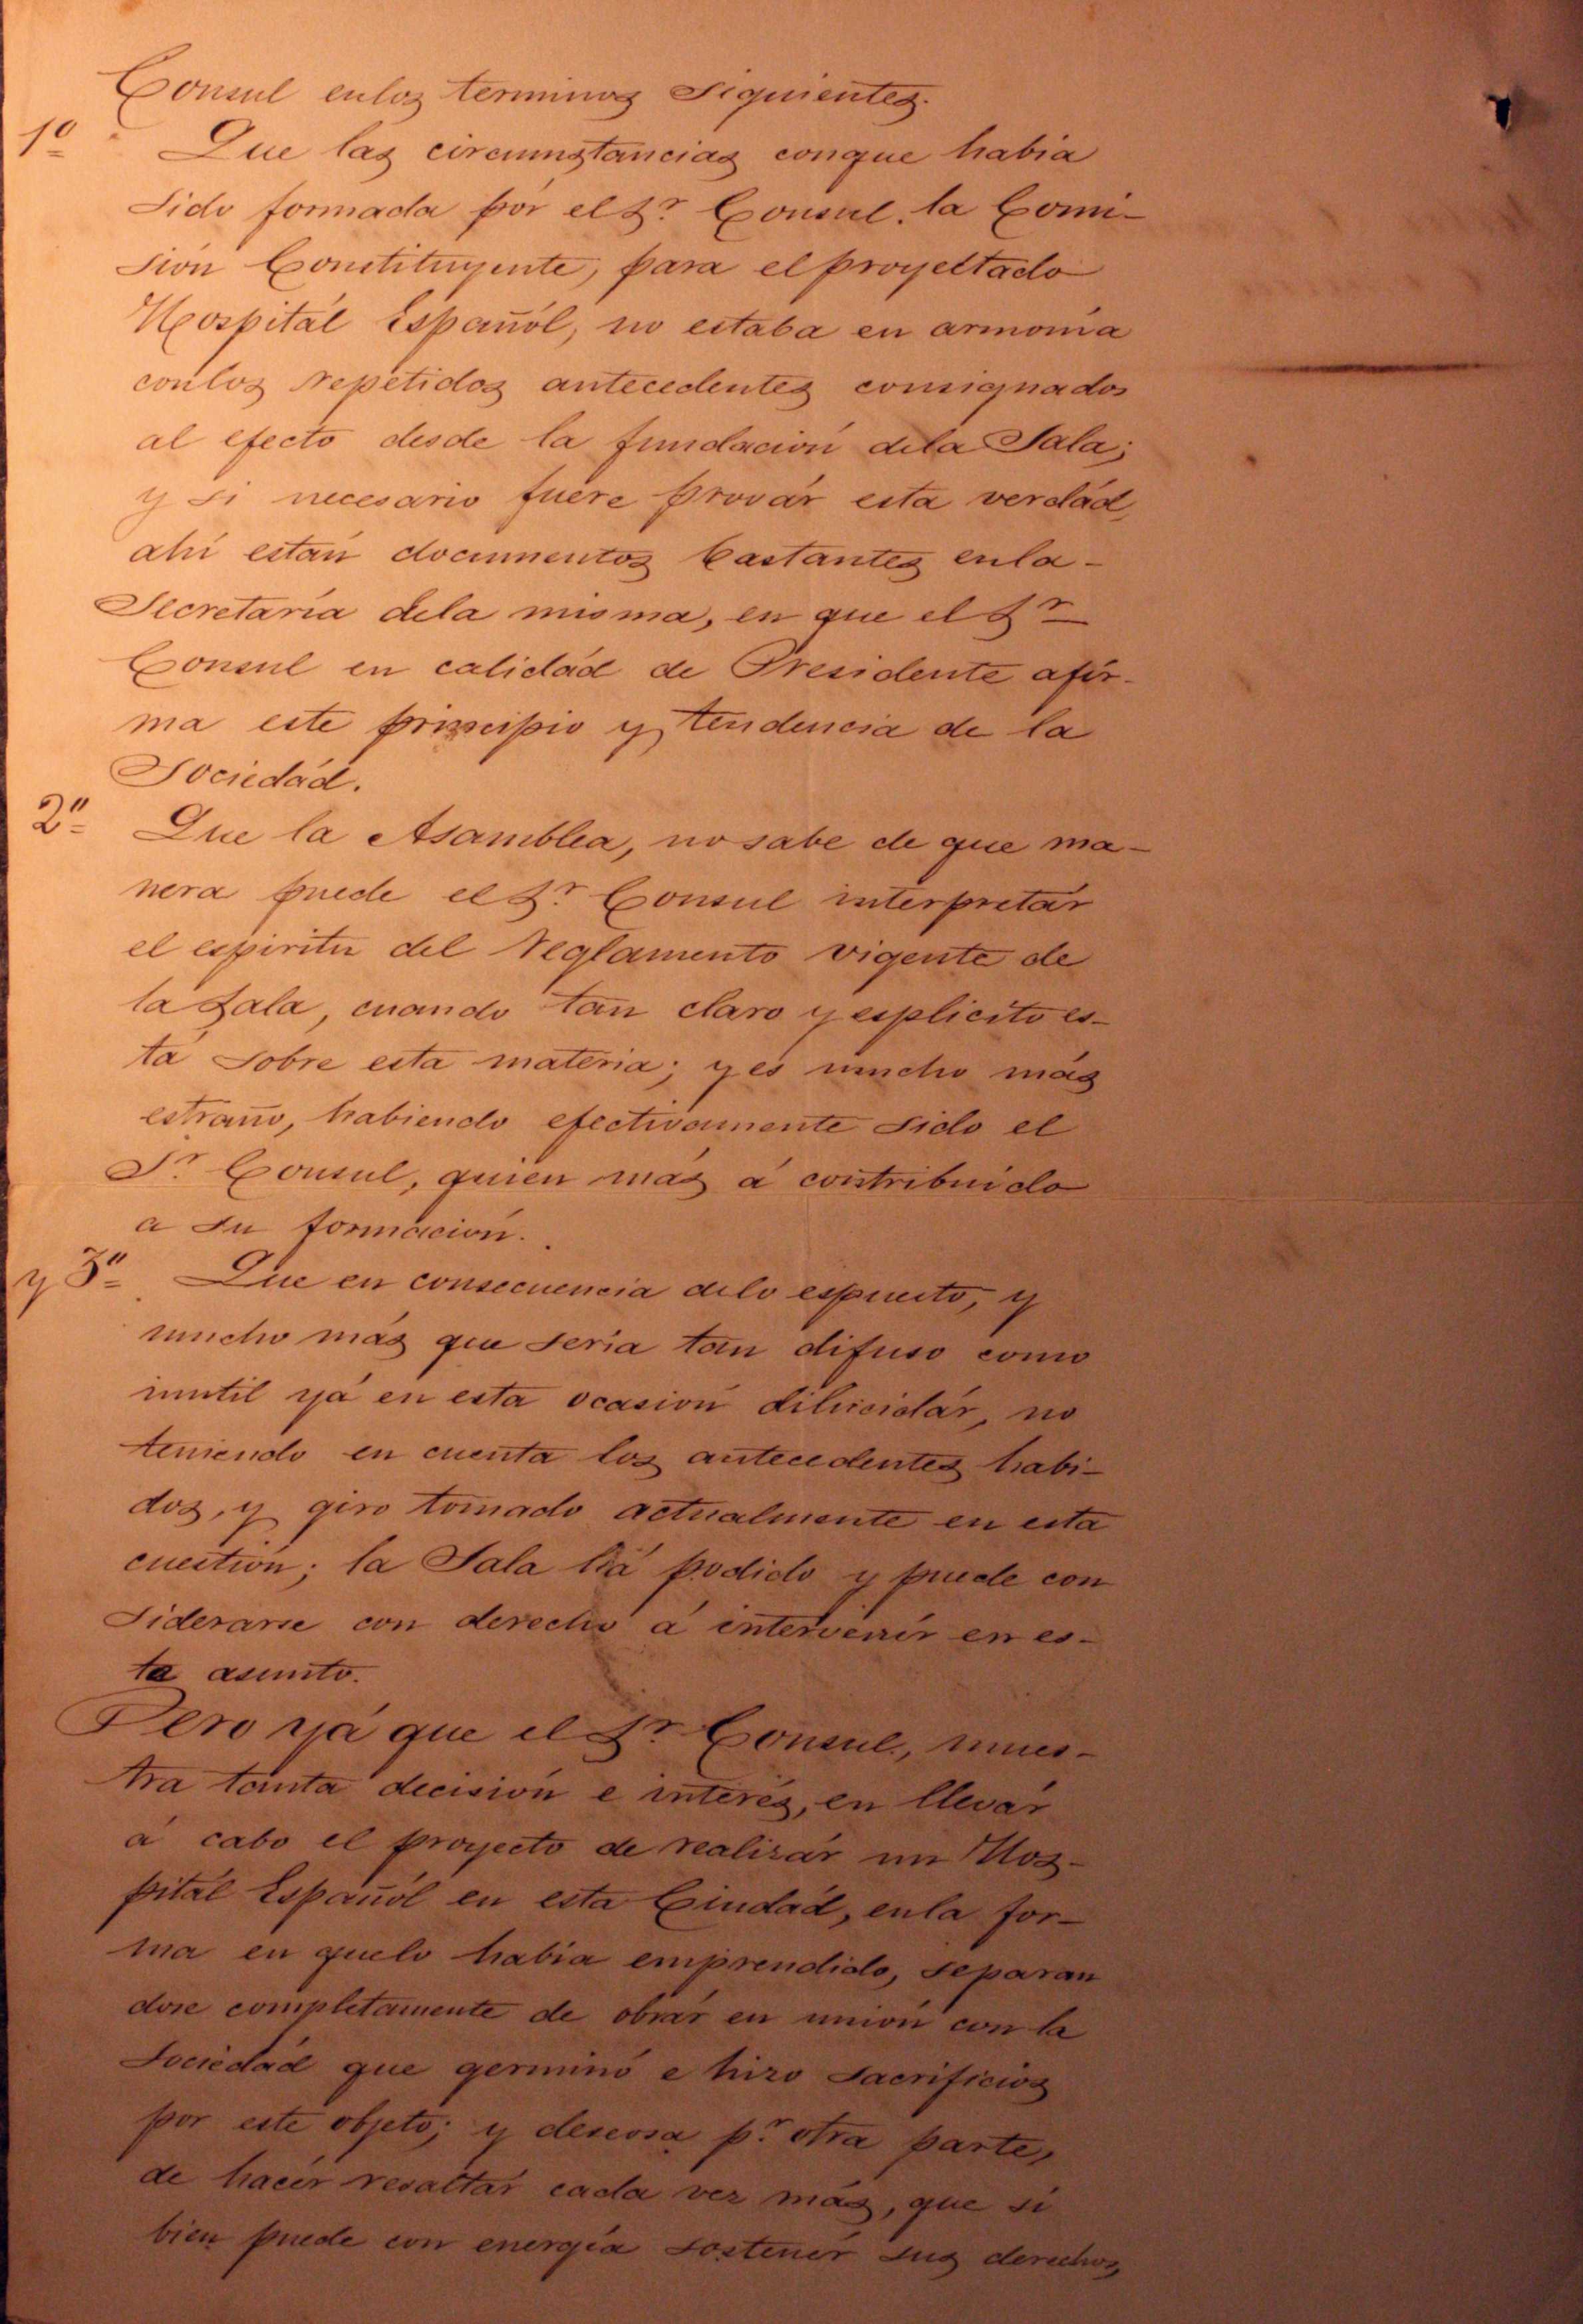 Consul enlos terminos siguientes.
1º Que las circumstancias conque habia
sido formada por el Sr. Consul. la Comi-
sión Constituyente, para el proyectado
Hospitál Españól, no estaba en armonía
conlos repetidos antecedentes consignados
al efecto desde la fundación dela Sala;
y si necesario fuere provár esta verdád,
ahí están documentos bastantes enla-
Secretaría dela misma, en que el Sr
Consul en calidád de Presidente afir-
ma este principio y tendencia de la
Sociedád.
2º Que la Asamblea, no sabe de que ma-
nera puede el Sr. Consul interpretár
el espiritu del reglamento vigente de
la Sala, cuando tan claro y esplicito es-
tá sobre esta materia; y es mucho más
estraño, habiendo efectivamente sido el
Sr. Consul, quien más á contribuido
a su formación.
y 3º Que en consecuencia delo espuesto, y
mucho más que seria tan difuso como
inutil yá en esta ocasión dilucidár, no
teniendo en cuenta los antecedentes habi-
dos, y giro tomado actualmente en esta
cuestión; la Sala há podido y puede con
siderarse con derecho á intervenir en es-
te asunto.
Pero yá que el Sr. Consul, mues-
tra tanta decisión e interés, en llevár
á cabo el proyecto de realizár un Hos-
pitál Españól en esta Ciudád, enla for-
ma en quelo habia emprendido, separan
dose completamente de obrár en unión con la
Sociedád que germinó e hizo sacrificios
por este objeto; y deseosa pr. otra parte,
de hacér resaltár cada vez más, que si
bien puede con energía sostenér sus derechos,